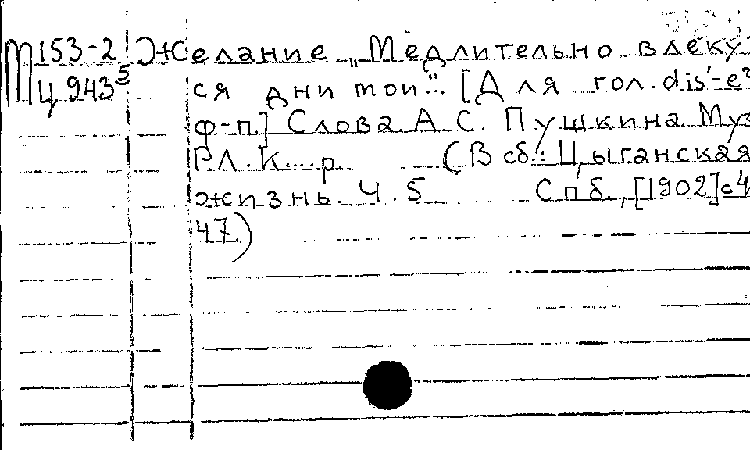 М153-2 Желание „Медлительно влеку-
Ц 943⁵ ся дни мои". [Для гол. dis'-e²
ф-п.] Слова А. С. Пушкина. Муз
Вл. К...р (В сб.: Цыганская
жизнь. Ч. 5 Спб, [1902] с 4
47)